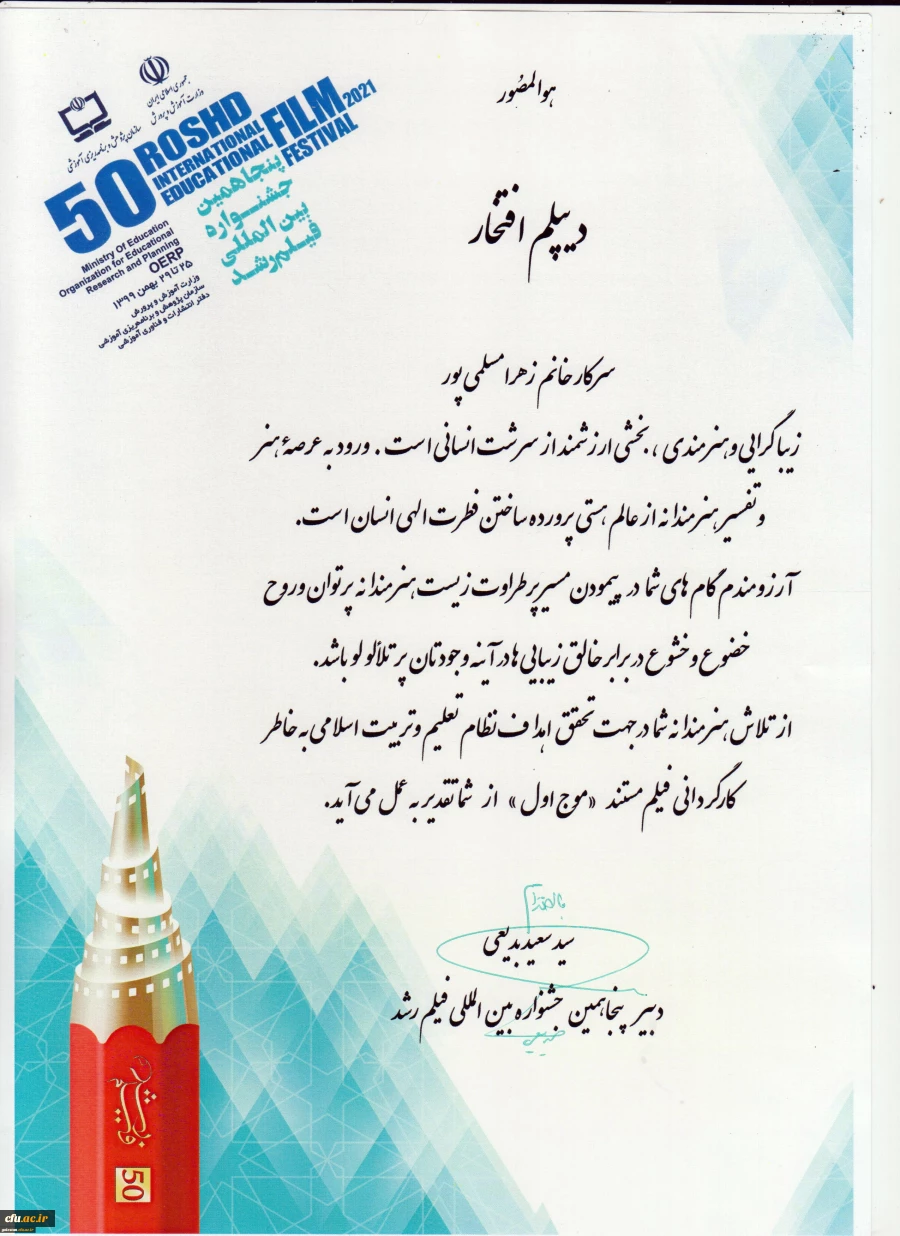 هوالمصور
جمهوری اسلامی ایران
وزارت آموزش و پرورش
سازمان پژوهش و برنامه‌ریزی آموزشی
50 ROSHD
INTERNATIONAL
EDUCATIONAL FILM 2021
FESTIVAL
پنجاهمین
جشنواره
بین المللی
فیلم رشد
Ministry Of Education
Organization for Educational
Research and Planning
OERP
۲۵ تا ۲۹ بهمن ۱۳۹۹
وزارت آموزش و پرورش
سازمان پژوهش و برنامه‌ریزی آموزشی
دفتر انتشارات و فناوری آموزشی
دیپلم افتخار
سرکار خانم زهرا مسلمی پور
زیباگرایی و هنرمندی ، بخشی ارزشمند از سرشت انسانی است . ورود به عرصهٔ هنر
و تفسیر هنرمندانه از عالم هستی پرورده ساختن فطرت الهی انسان است.
آرزومندم گام های شما در پیمودن مسیر پر طراوت زیست هنرمندانه پر توان و روح
خضوع و خشوع در برابر خالق زیبایی ها در آینه وجودتان پر تلألو لو باشد.
از تلاش هنرمندانه شما در جهت تحقق اهداف نظام تعلیم و تربیت اسلامی به خاطر
کارگردانی فیلم مستند «موج اول» از شما تقدیر به عمل می آید.
سید سعید بدیعی
دبیر پنجاهمین جشنواره بین المللی فیلم رشد
50
cfu.ac.ir